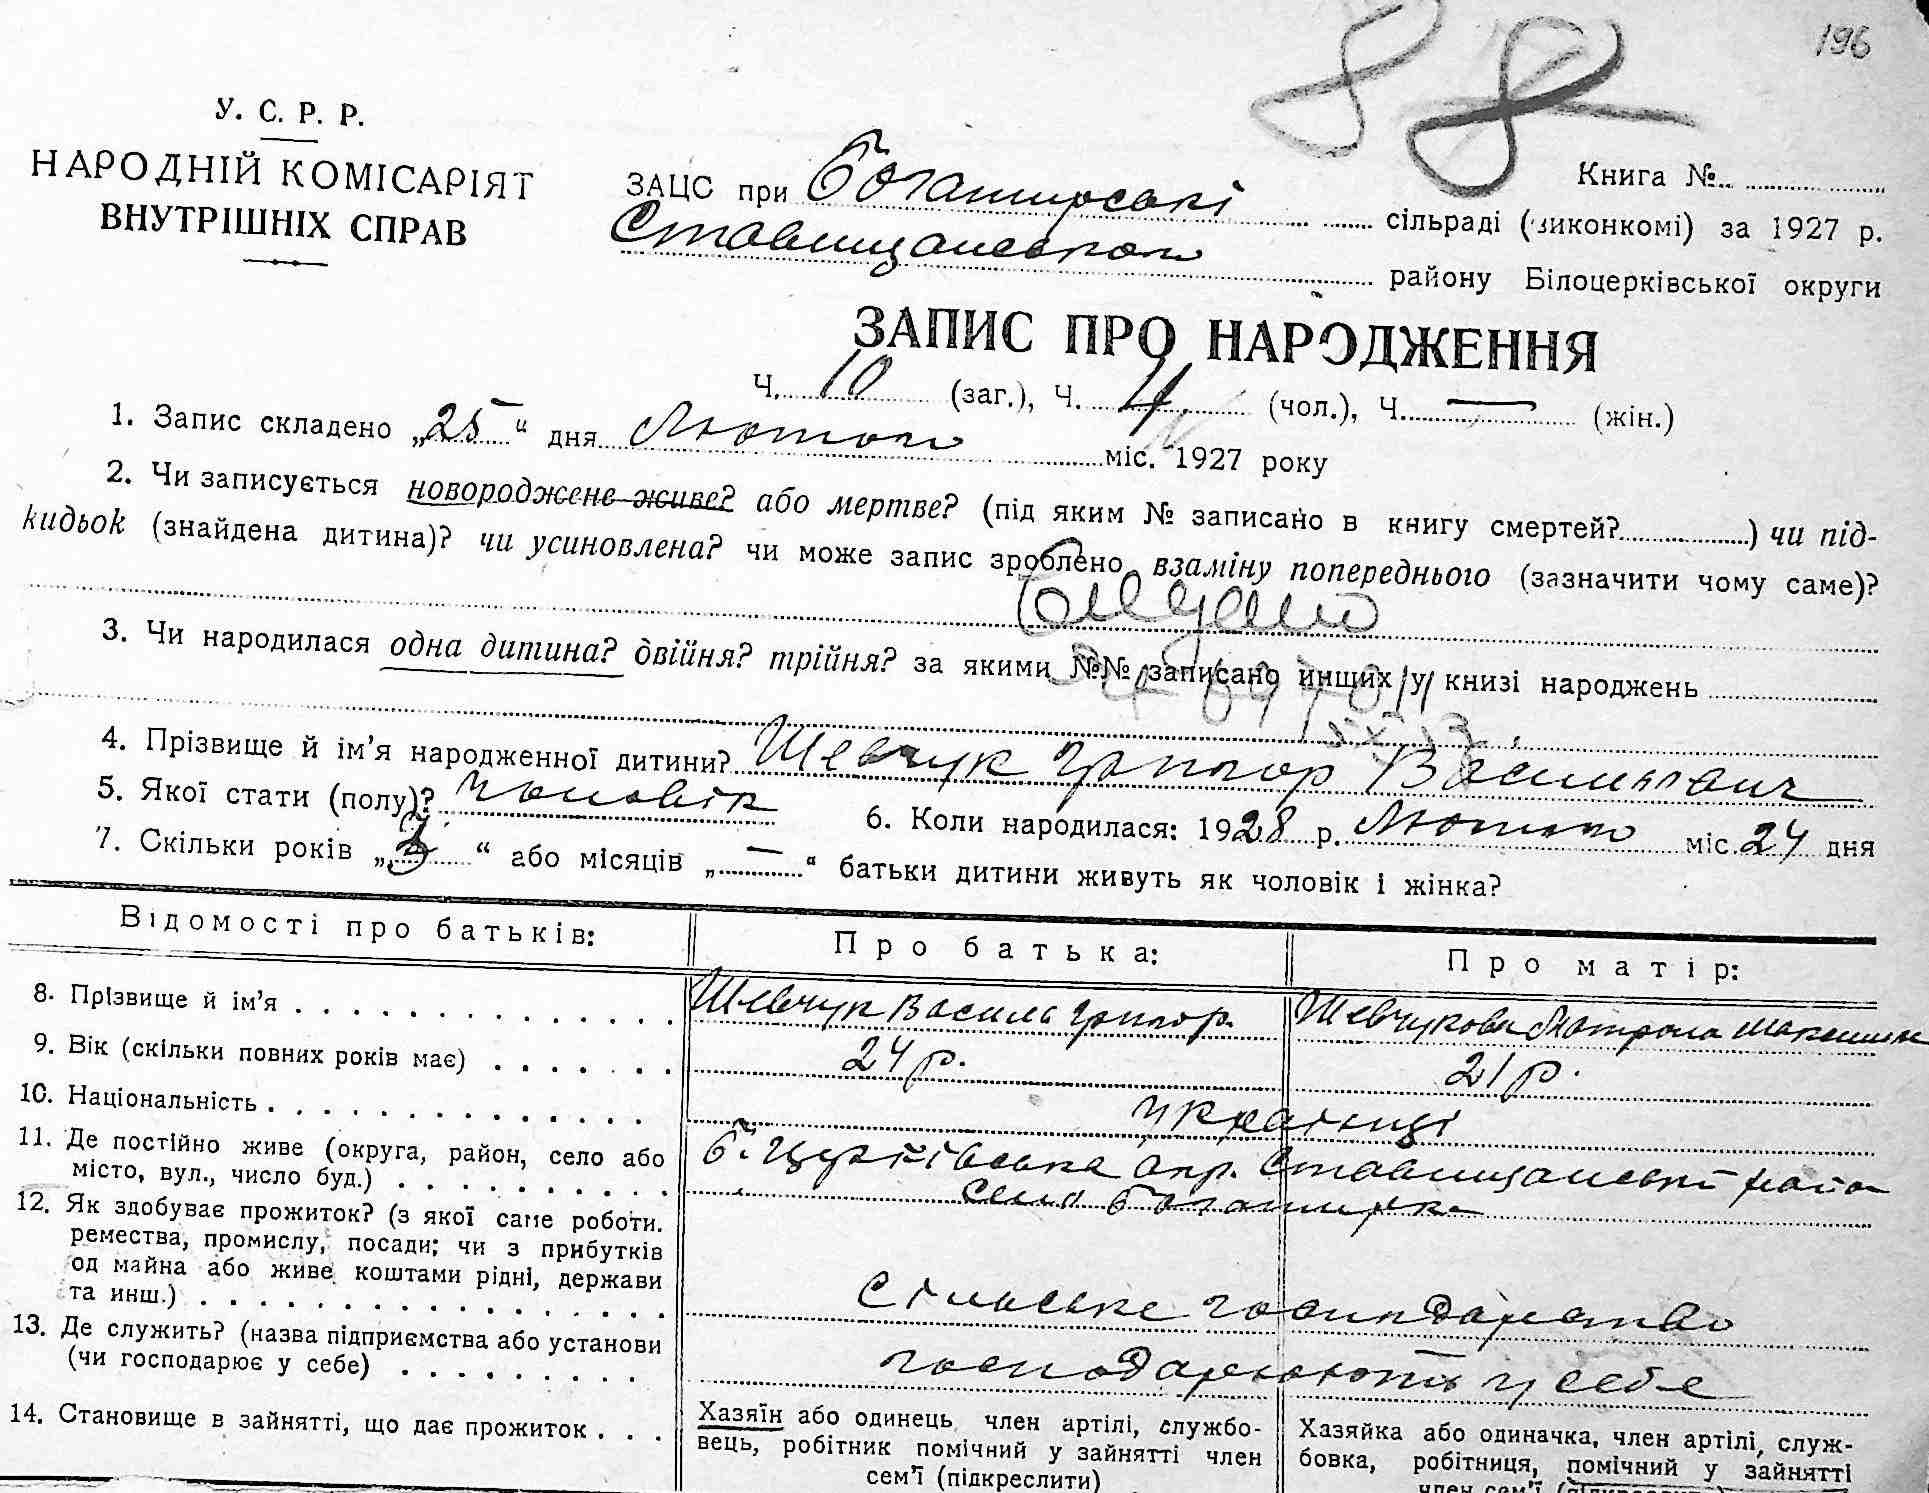 196
88
У. С. Р. Р.
НАРОДНІЙ КОМІСАРІЯТ
ВНУТРІШНІХ СПРАВ
Книга №
ЗАЦС при Богатирські сільраді (виконкомі) за 1927 р.
Ставищанського району Білоцерківської округи
ЗАПИС ПРО НАРОДЖЕННЯ
Ч. 10 (заг.), Ч. 4 (чол.), Ч. — (жін.)
1. Запис складено „25“ дня Лютого міс. 1927 року
2. Чи записується новороджене живе? або мертве? (під яким № записано в книгу смертей?) чи під-
кидьок (знайдена дитина)? чи усиновлена? чи може запис зроблено взаміну попереднього (зазначити чому саме)?
3. Чи народилася одна дитина? двійня? трійня? за якими №№ записано инших у книзі народжень
4. Прізвище й ім’я народженної дитини? Шевчук Григор Васильович
5. Якої стати (полу)? Чоловік 6. Коли народилася: 1928 р. Лютого міс. 24 дня
7. Скільки років „3“ або місяців „—“ батьки дитини живуть як чоловік і жінка?
Відомості про батьків: Про батька: Про матір:
8. Прізвище й ім’я Шевчук Василь Григор. Шевчукова Мотрона Максимів
9. Вік (скільки повних років має) 24 р. 21 р.
10. Національність українці
11. Де постійно живе (округа, район, село або
місто, вул., число буд.) Б. Церківська окр. Ставищанський район
село Богатирка
12. Як здобуває прожиток? (з якої саме роботи.
ремества, промислу, посади; чи з прибутків
од майна або живе коштами рідні, держави
та инш.) Сільське господарство
13. Де служить? (назва підприємства або установи
(чи господарює у себе) господарюють у себе
14. Становище в зайнятті, що дає прожиток
Хазяїн або одинець, член артілі, службо-
вець, робітник помічний у зайнятті член
сем’ї (підкреслити)
Хазяйка або одиначка, член артілі, служ-
бовка, робітниця, помічний у зайнятті
член сем’ї (підкреслити)